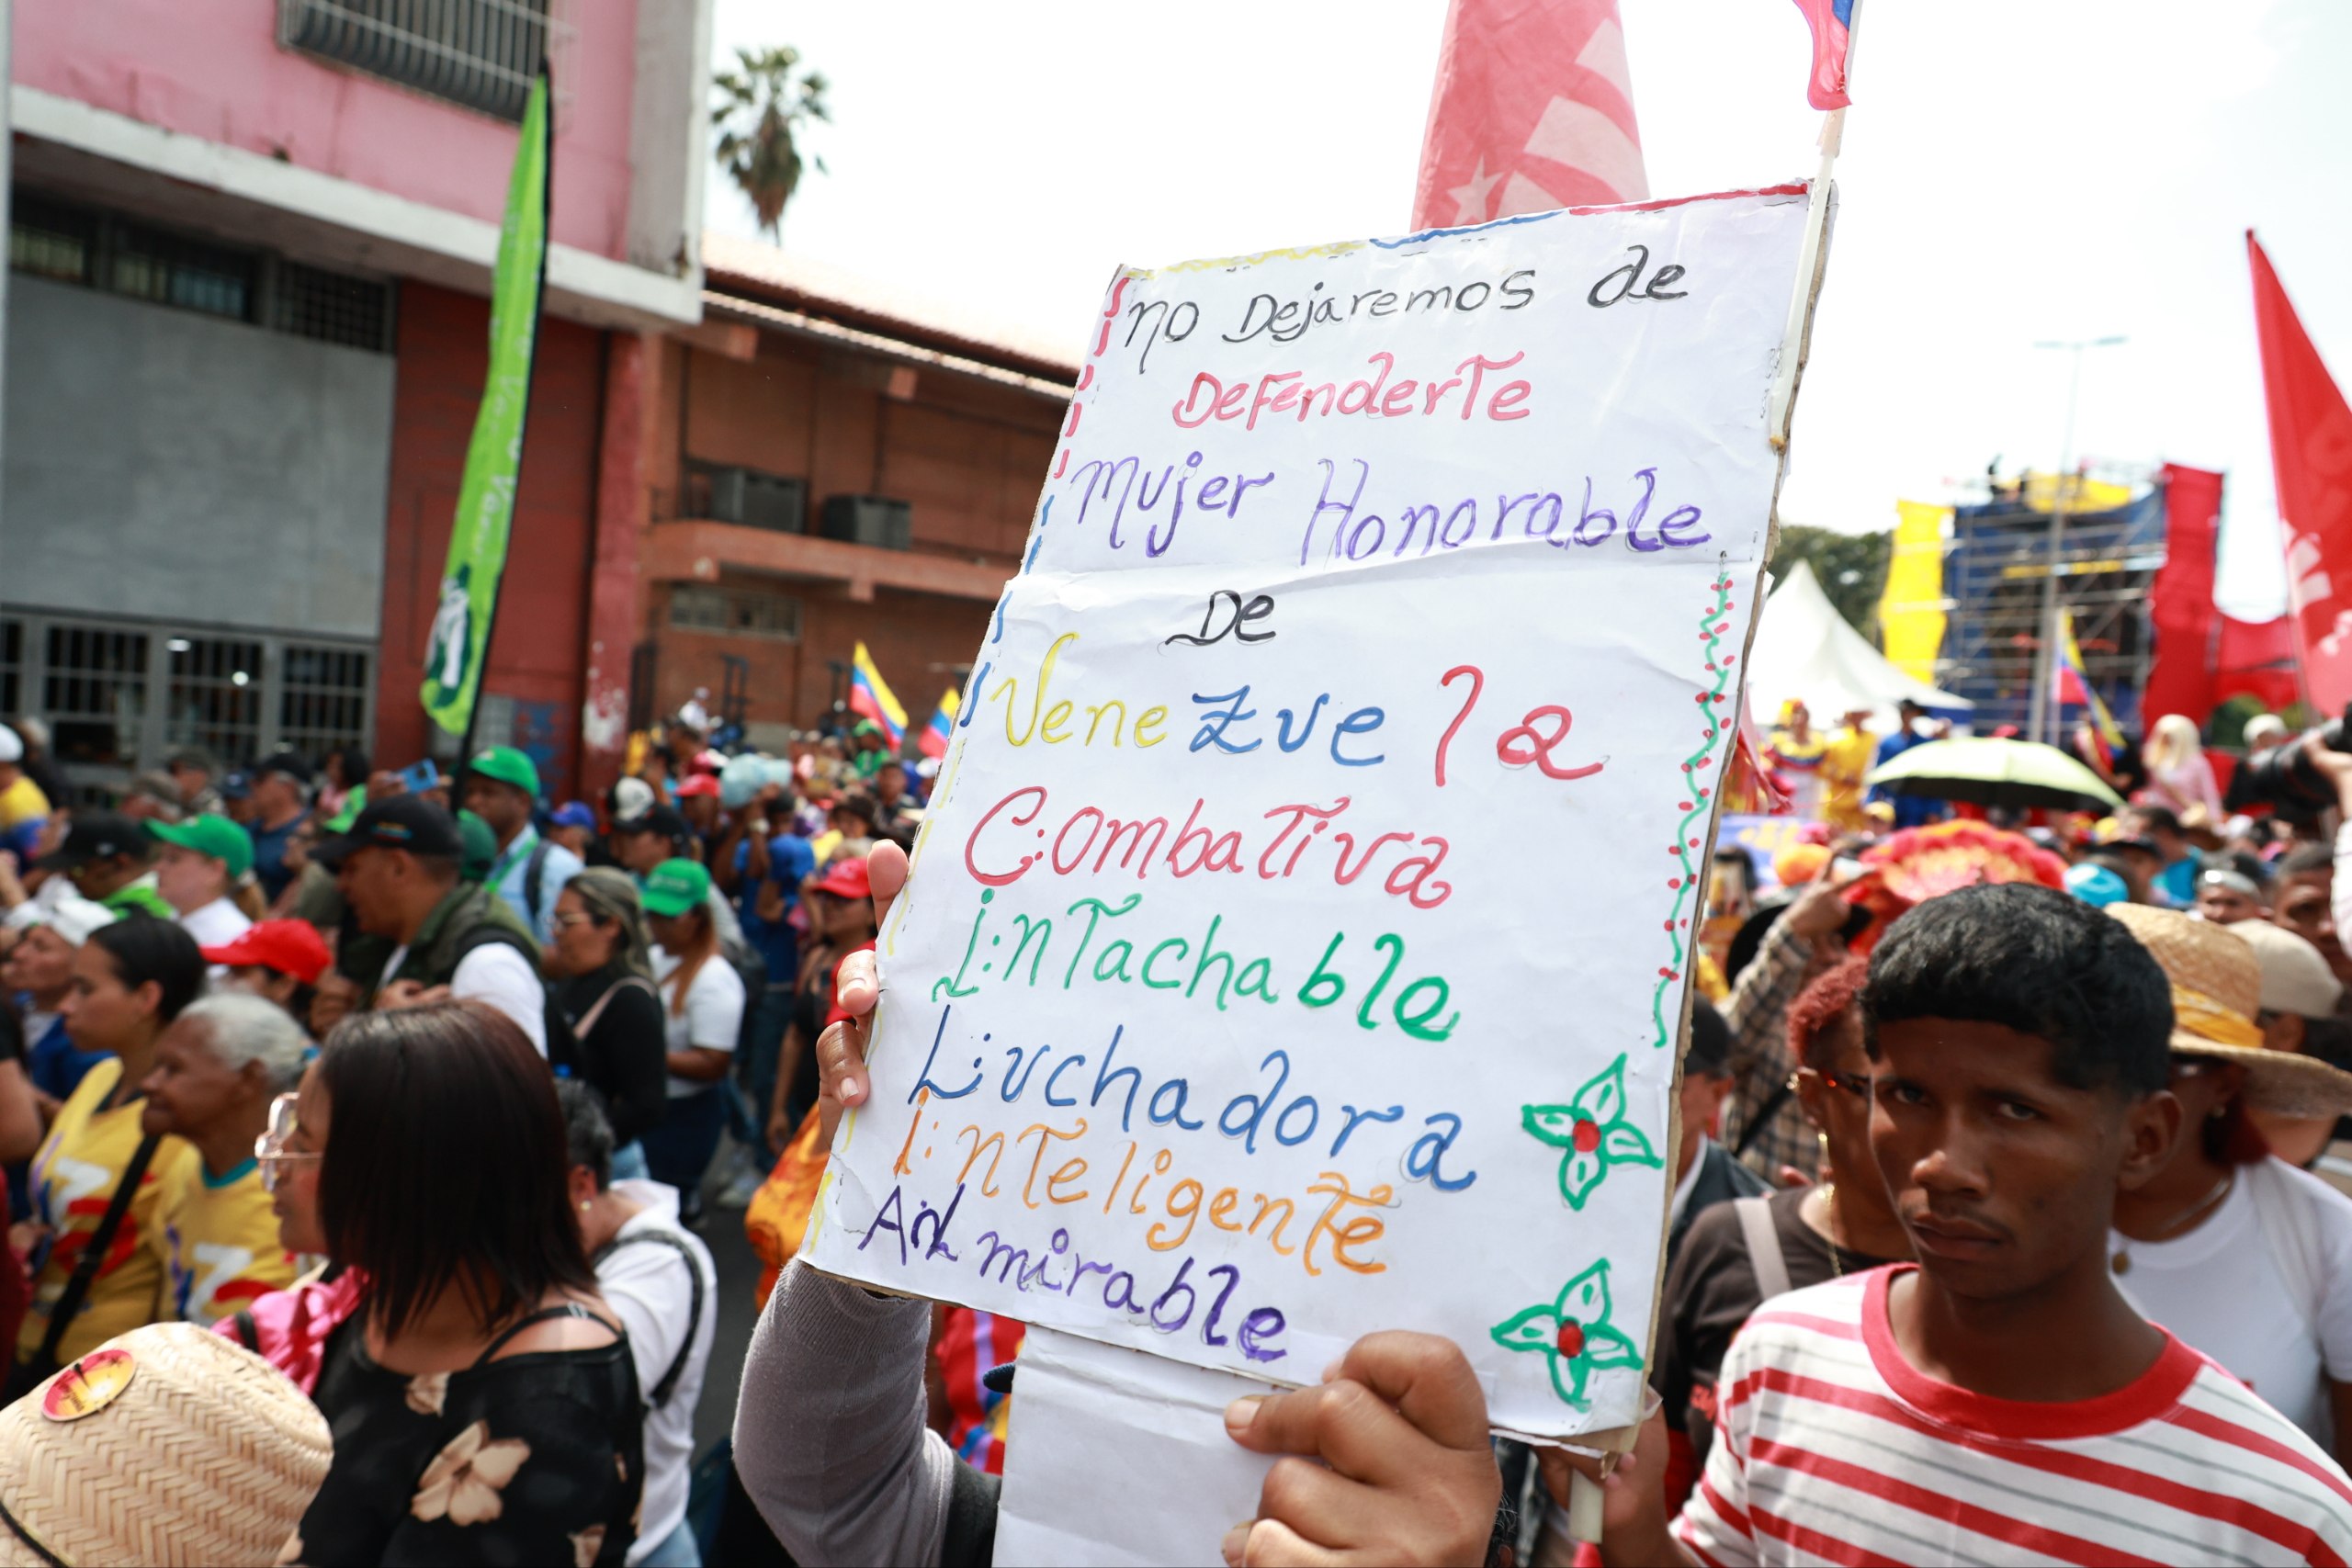 no Dejaremos de
Defenderte
Mujer Honorable
De
Venezuela
C:ombativa
I:ntachable
L:uchadora
I:nteligente
Admirable